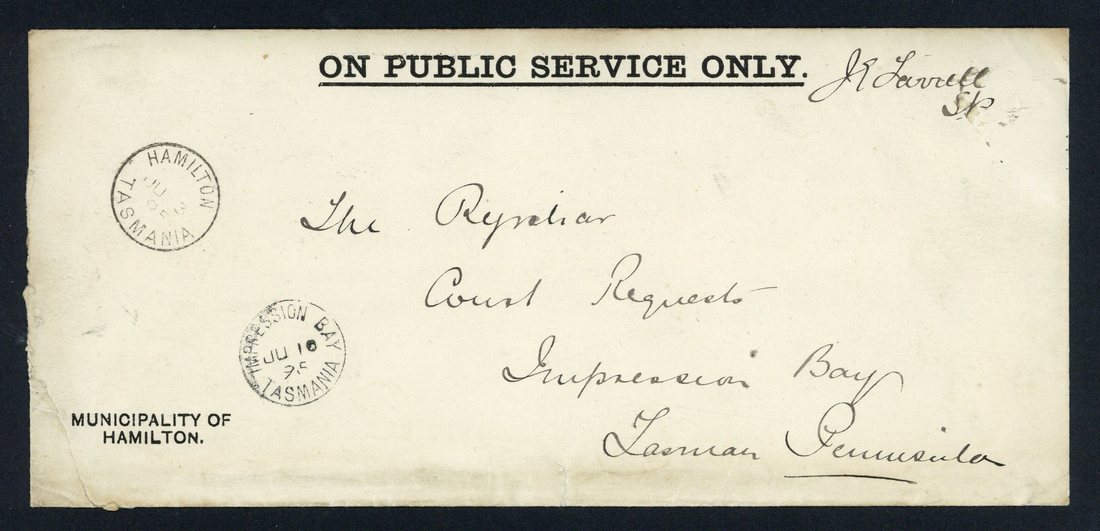 ON PUBLIC SERVICE ONLY.
HAMILTON
JU
95
TASMANIA
The Registrar
Court Requests
Impression Bay
Tasman Peninsula
IMPRESSION BAY
JU 16
95
TASMANIA
MUNICIPALITY OF
HAMILTON.